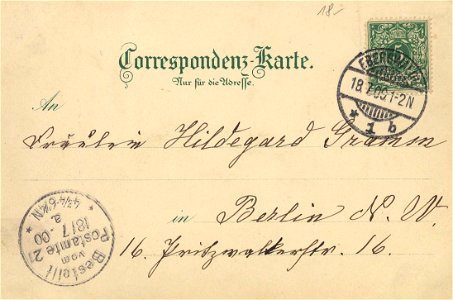 18.-
Correspondenz-Karte.
Nur für die Adresse.
An
Fräulein Hildegard Gramm
in Berlin N. W.
16. Pritzwalkerstr. 16.
EBERSWALDE
18.7.00.1-2N
* 1 b
Bestellt
vom
Postamte 21
18/7.00
4¾-6¼N